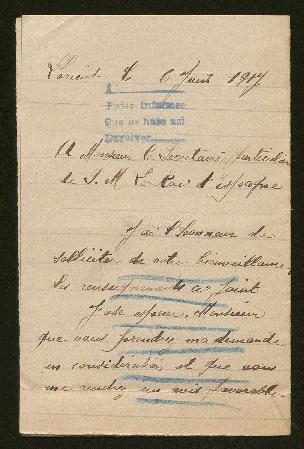 Lorient le 6 Juin 1917
A
Pedir informes
Que se hace así
Devolver
A Monsieur le Secrétaire particulier
de S. M. le Roi d'Espagne
J'ai l'honneur de
solliciter de votre bienveillance,
les renseignements ci-joint
J'ose espérer, Monsieur
que vous prendrez ma demande
en considération et que vous
me rendrez un avis favorable.